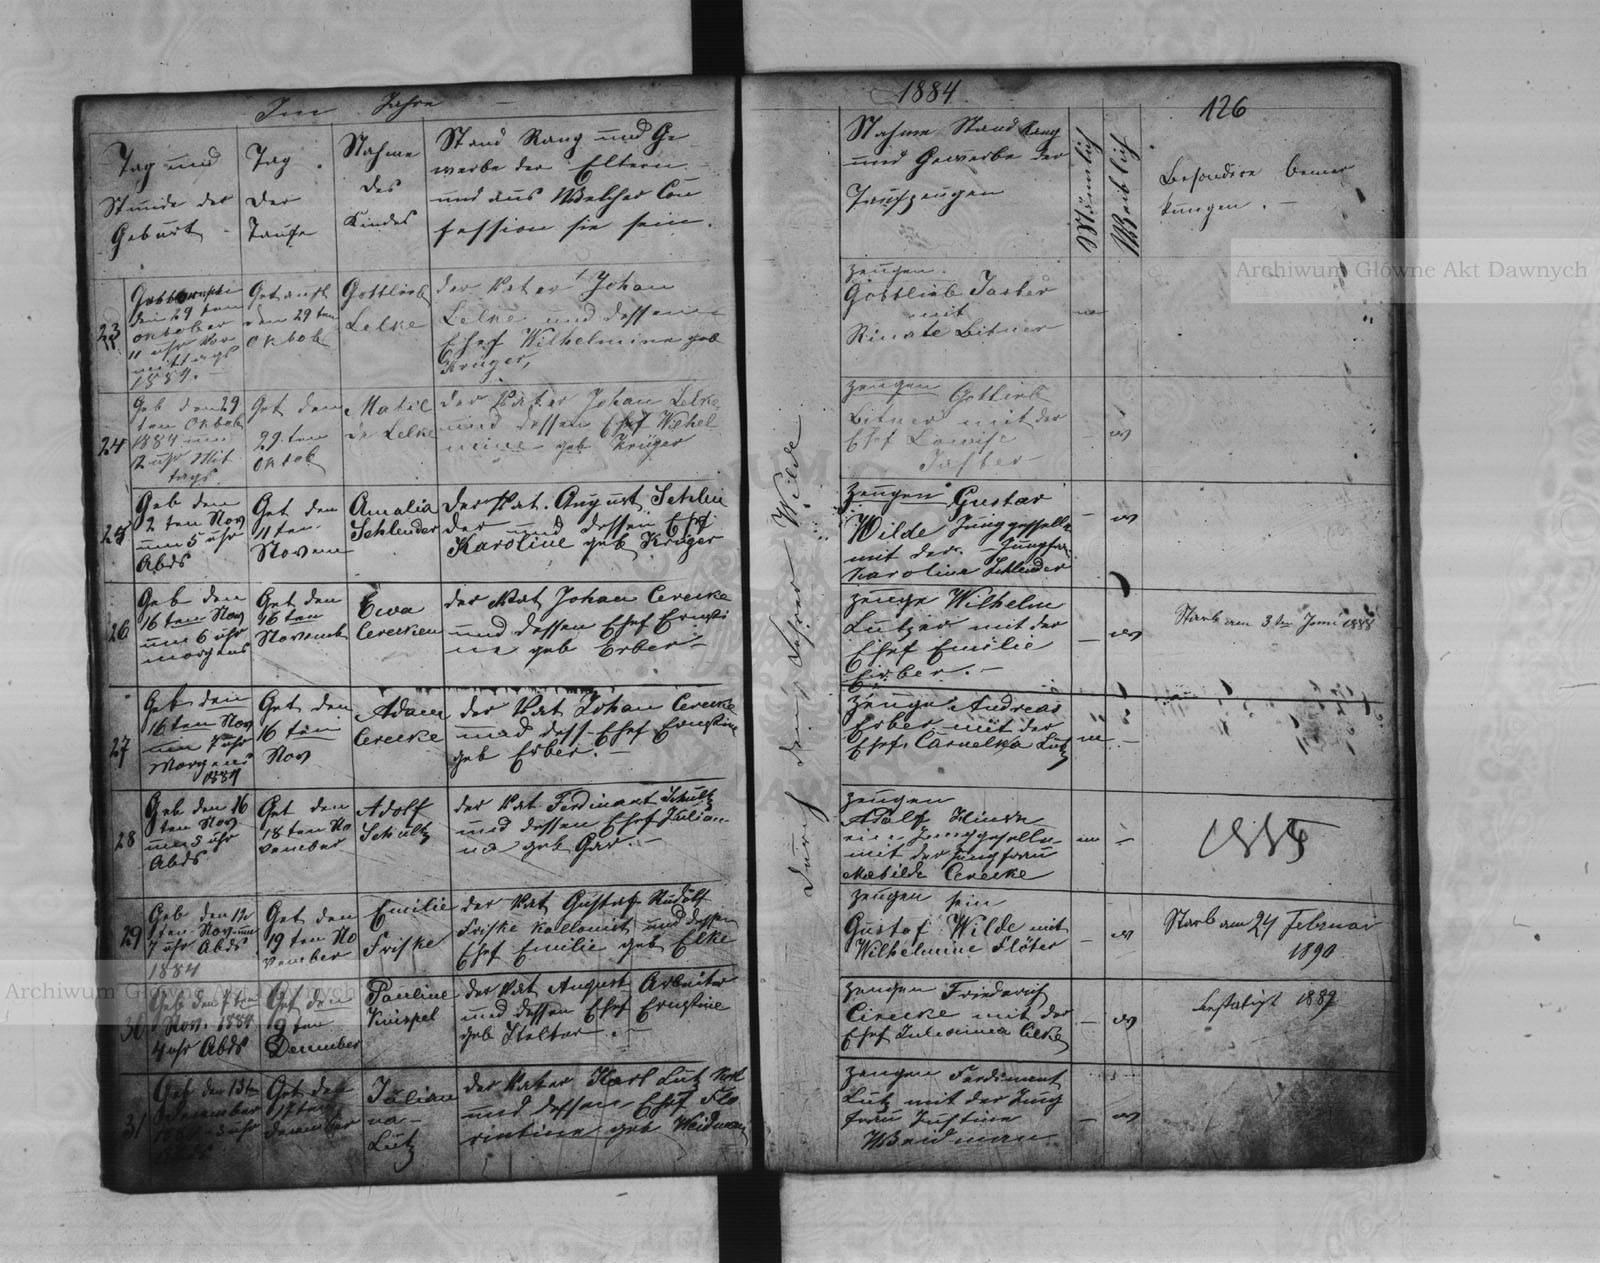 Im Jahre
1884
126
Tag und
Stunde der
Geburt
Tag
der
Taufe
Nahme
des
Kindes
Stand Rang und Ge
werbe der Eltern
und aus Welcher Con
fession sie sein.
Nahme Stand Rang
und Gewerbe der
Taufzeugen
Männlich
Weiblich
Besondere bemer
kungen.
durch den Lehrer Wilde
23
den 29 ten
oktober
11 uhr Vor
mittags
1884.
Getauft
den 29 ten
oktob
Gottlieb
Lelke
der Vater Johan
Lelke und dessen
Ehef Wilhelmine geb
Krüger,
zeugen.
Gottlieb Jaster
mit
Rinate Bitner
m
24
Geb den 29
ten Oktob
1884 um
12 uhr Mit
tags.
Get den
29 ten
oktob
Matil
de Lelke
der Vater Johan Lelke
und dessen Ehef Wilhel
mine geb Krüger
zeugen Gottlieb
Bitner mit der
Ehef Lowise
Jaster
— w
25
Geb den
2 ten Nov
um 5 uhr
Abds
Get den
11 ten
Novem
Amalia
Schlender
der Vat. August Schlen
der und dessen Ehef
Karoline geb Krüger
zeugen Gustav
Wilde Junggeselle
mit der Jungfrau
Karolina Schlender
— w
26
Geb den
16 ten Nov
um 6 uhr
morgens
Get den
16 ten
Novemb
Ewa
Cerecken
der Vat Johan Cerecke
und dessen Ehef Ernsti
ne geb Erber
zeuge Wilhelm
Lutzer mit der
Ehef Emilie
Erber.
— w
Starb am 3 ten Juni 1888
27
Geb den
16 ten Nov
um 7 uhr
Morgens
1884
Get den
16 ten
Nov
Adam
Cerecke
der Vat Johan Cerecke
und dess. Ehef Ernstine
geb Erber.
zeuge Andreas
Erber mit der
Ehef. Carnelka Lutz
m —
28
Geb den 16
ten Nov
um 5 uhr
Abds
Get den
18 ten No
vember
Adolf
Schultz
der Vat Ferdinant Schultz
und dessen Ehef Julian
na geb Gar.
zeugen
Adolf
ein Junggeselle
mit der Jungfrau
Matilde Cerecke
m —
29
Geb den 12
ten Nov um
7 uhr Abds
1884
Get den
19 ten No
vember
Emilie
Friske
der Vat Gustaf Rudolf
Friske Kallonist und dessen
Ehef Emilie geb Elke
zeugen sein
Gustof Wilde mit
Wilhelmine Flöter
— w
Starb am 24 Februar
1890
30
Geb den 7 ten
Nov. 1884
4 uhr Abds
Get den
19 ten
December
Pauline
Knispel
der Vat August Arbeiter
und dessen Ehef Ernstine
geb Stelter
zeugen Friederich
Cirecke mit der
— w
bestatigt 1889
31
Geb den 13 ten
December
Get den
17 ten
december
Julian
na
Lutz
der Vater Karl Lutz
und dessen Ehef Flo
rintine geb Weidman
zeugen Ferdinant
Lutz mit der Jung
frau Justine
Weidman
— w
Archiwum Główne Akt Dawnych
Archiwum Główne Akt Dawnych